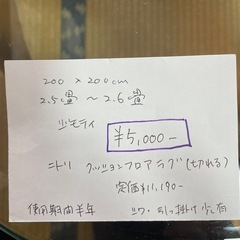 200 × 200cm
2.5畳 〜 2.6畳
¥5,000-
ニトリ クッションフロアラグ(切れる)
定価¥11,190-
使用期間半年
シワ・引っ掛け少し有